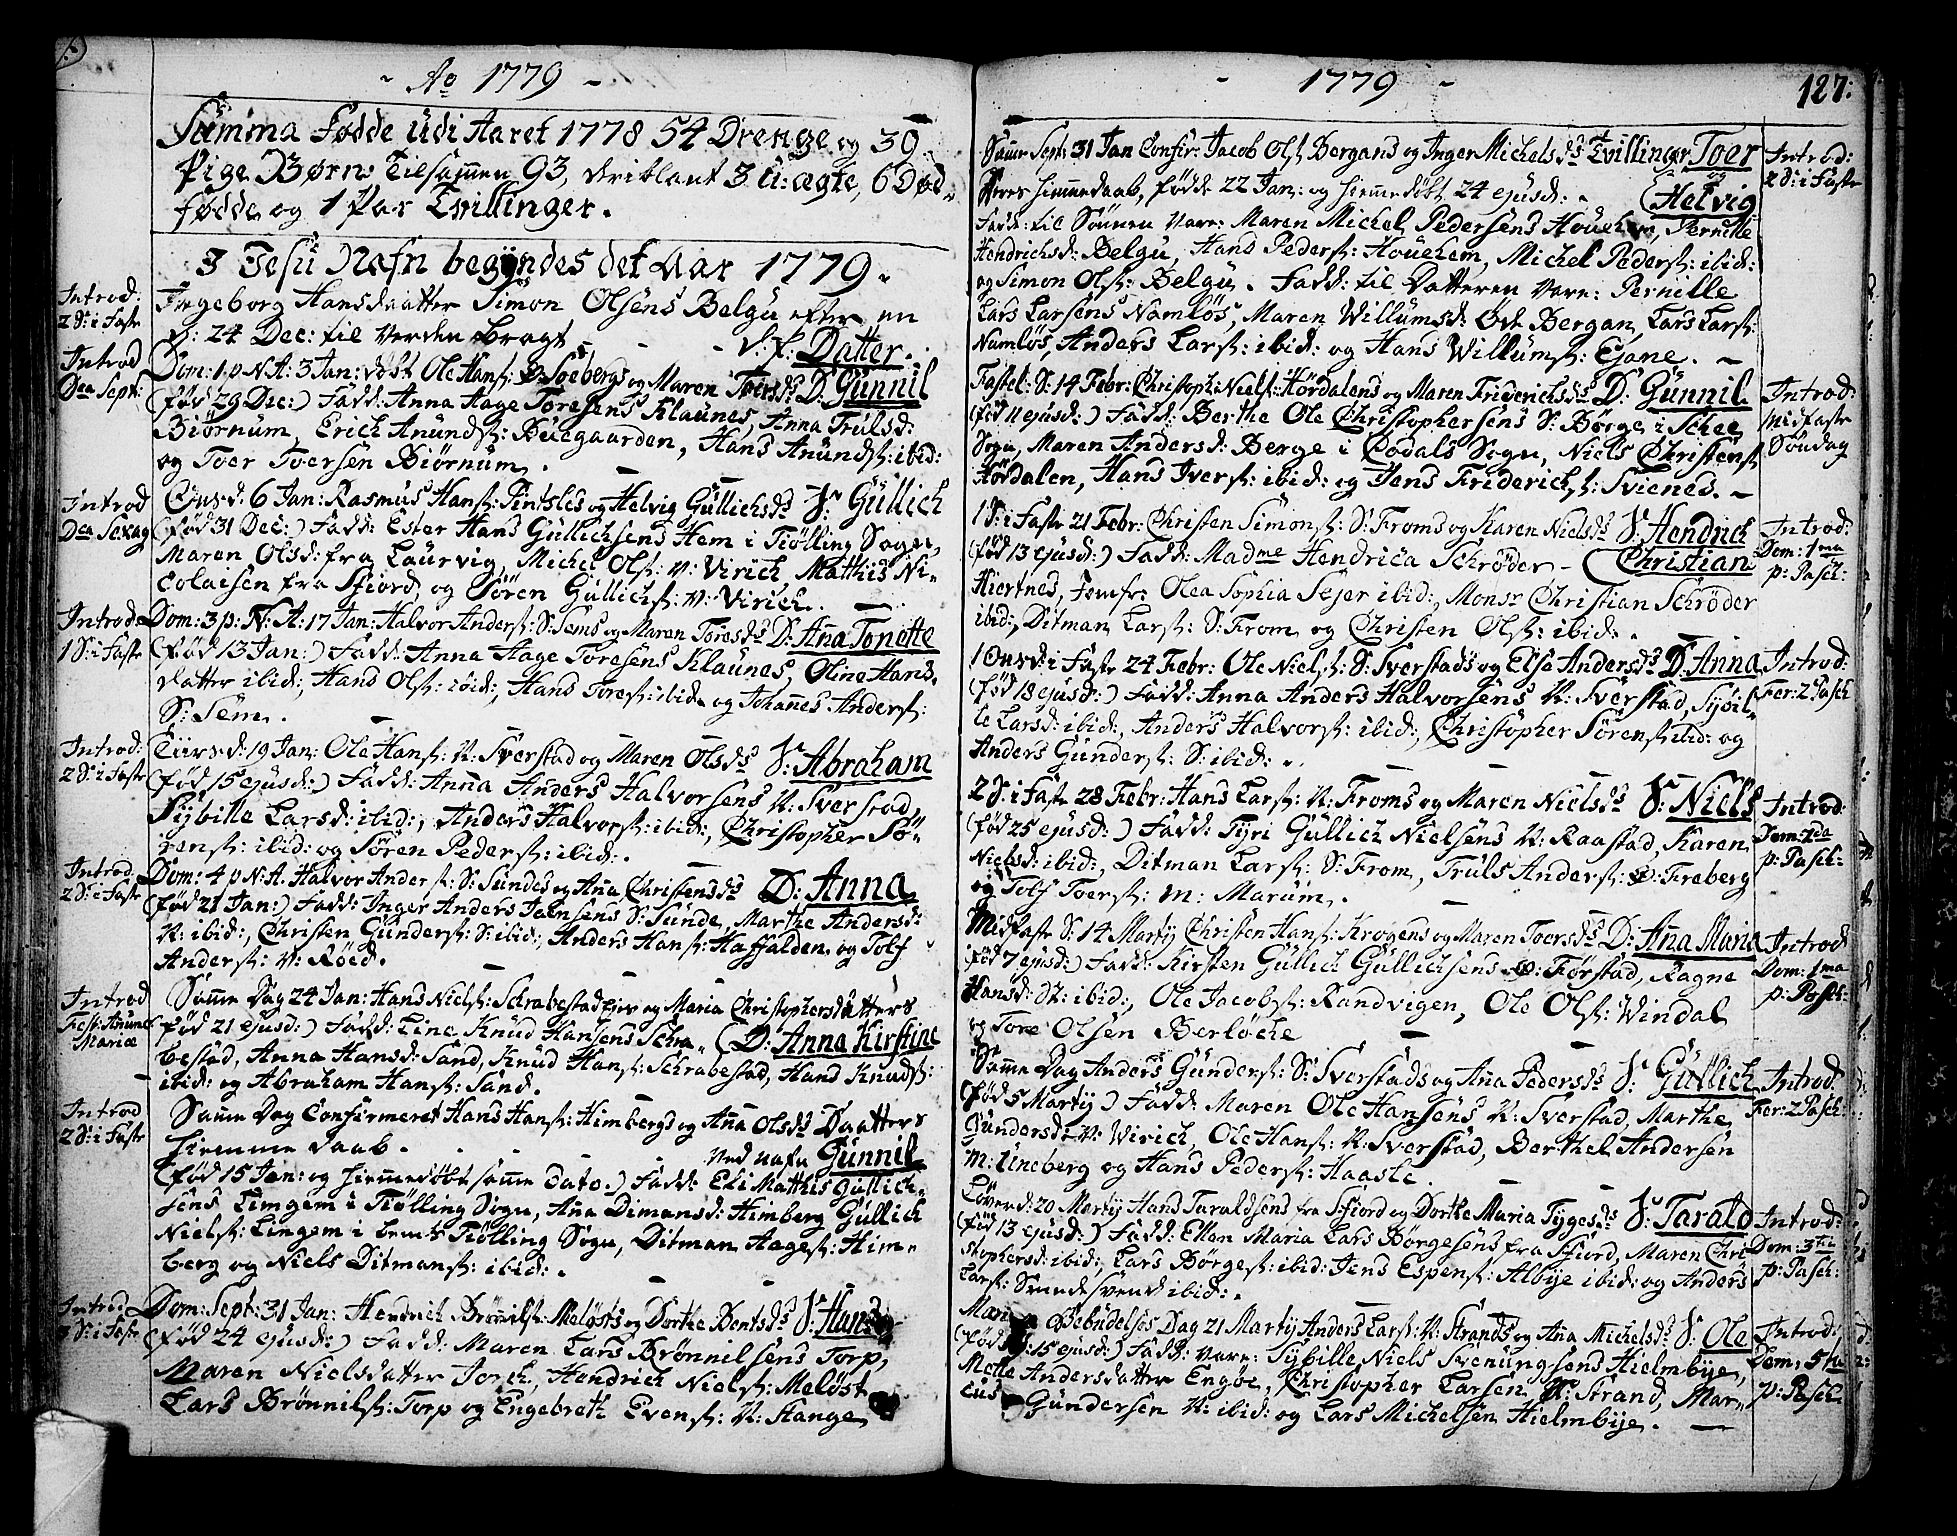 Ao 1779
Summa Fødde udi Aaret 1778 54 Drenge og 39
Pige Børn tilsammen 93, deriblant 3 u:ægte, 6 Død-
fødde og 1 Par Tvillinger.
I Jesu Nafn begyndes det Aar 1779.
Introd: 2 S: i Faste
Ingeborg Hansdaatter Simon Olsens Belgu efter en
d: 24 Dec: til Verden bragt d: f: Datter.
Introd Dca Sept:
Dom: 1 p N.A: 3 Jan: døbt Ole Hans: Soebergs og Maren Toersds D: Gunnil
(fød 29 Dec:) Fadd: Anna Aage Toresens Klaunes, Anna Trulsd:
Biørnum, Erich Anunds: Buegaarden, Hans Anunds: ibid:
og Toer Toersen Biørnum.
Introd Dca Sexag
Onsd: 6 Jan: Rasmus Hans: Pintsles og Helvig Gullichsds S: Gullich
(fød 31 Dec:) Fadd: Ester Hans Gullichsens Hem i Tiølling Sogn,
Maren Olsd: fra Laurvig, Michel Ols: V: Virich, Mathis Ni-
colaisen fra Sfiord, og Søren Gullichs: V: Virich.
Introd 1 S: i Faste
Dom: 3 p: N: A: 17 Jan: Halvor Anders: S: Sems og Maren Toresds D: Aña Tonette
(fød 13 Jan:) Fadd: Anna Aage Toresens Klaunes, Oline Hans-
datter ibid:, Hans Ols: ibid:, Hans Tores: ibid: og Johannes Anders:
S: Sem.
Introd: 2 S: i Faste
Tiirsd: 19 Jan: Ole Hans: N: Sverstad og Maren Olsds S: Abraham
(fød 15 ejusd:) Fadd: Anna Anders Halvorsens N: Sverstad,
Sybille Larsd: ibid:, Anders Halvors: ibid:, Christopher Sø-
rens: ibid: og Søren Peders: ibid:.
Introd 2 S: i Faste
Dom: 4 p N: A. Halvor Anders: S: Sundes og Aña Christensds D: Anna
(fød 21 Jan:) Fadd: Inger Anders Jahnsens S: Sunde, Marthe Andersd:
N: ibid:, Christen Gunders: S: ibid:, Anders Hans: Haffalden, og Tolf
Anders: V: Røed.
Introd Fest: Añunc Mariæ
Samme Dag 24 Jan: Hans Niels: Schrabestad Eier og Maria Christophersdatters
(fød 21 ejusd:) Fadd: Line Knud Hansens Schra- (D: Anna Kirstine
bestad, Anna Hansd: Sand, Knud Hans: Schrabestad, Hans Knuds:
ibid: og Abraham Hans: Sand.
Introd 2 S: i Faste
Samme Dag Confirmeret Hans Hans: Himbergs og Aña Olsds Daatters
Hiemme Daab. Ved Nafn Gunnil
(fød 15 Jan: og hiemmedøbt samme Dato.) Fadd: Eli Mathis Gullich-
sens Limgem i Tiølling Sogn, Aña Dimansd: Himberg Gullich
Niels: Lingem i bemte Tiølling Sogn, Ditman Aages: Him-
berg og Niels Ditmans: ibid:.
Introd 3 S: i Faste
Dom: Sept: 31 Jan: Hendrich Brønnils: Meløsts og Dorthe Bentsds S: Hans
(fød 24 ejusd:) Fadd: Maren Lars Brønnilsens Torp,
Maren Nielsdatter Jorck, Hendrich Niels: Meløst
Lars Brønnils: Torp og Engebreth Evens: N: Hange
1779 127:
Samme Sept: 31 Jan Confir: Jacob Ols: Bergans og Inger Michelsds Tvillinger Toer
og
Deres Hiemmedaab, fødde 22 Jan: og hiemmedøbt 24 ejusd: (Helvig
Introd: 2 S: i Faste
Fadd: til Sønnen vare: Maren Michel Pedersens Houehem, Pernille
Hendrichsd: Belgu, Hans Peders: Houehem, Michel Peders: ibid:
og Simon Ols: Belgu. Fadd: til Datteren vare: Pernille
Lars Larsens Namløs, Maren Willumsd: Øde Bergan, Lars Lars:
Namløs, Anders Lars: ibid: og Hans Willums: Ejane.
Fastel: S: 14 Febr: Christoph: Niels: Hørdalens og Maren Friderichsds D: Gunnil
(fød 11 ejusd:) Fadd: Berthe Ole Christophersens S: Børge i Schee
Sogn, Maren Andersd: Berge i Codals Sogn, Niels Christens:
Hørdalen, Hans Ivers: ibid: og Jens Friderichs: Svienes.
Introd: Midfaste Søndag
1 S: i Faste 21 Febr: Christen Simons: S: Froms og Karen Nielsds S: Hendrich
(fød 13 ejusd:) Fadd: Madme Hendrica Schrøder (Christian
Hiertnes, Jomfr: Olea Sophia Sejer ibid:, Monsr Christian Schrøder
ibid:, Ditman Lars: S: From og Christen Ols: ibid:.
Introd: Dom: 1ma p: Pasch:
1 Onsd: i Faste 24 Febr: Ole Niels: S: Sverstads og Elsa Andersds D: Anna
(fød 18 ejusd:) Fadd: Anna Anders Halvorsens N: Sverstad, Sybil-
le Larsd: ibid:, Anders Halvors: ibid:, Christopher Sørens: ibid: og
Anders Gunders: S: ibid:.
Introd: Fer: 2 Pasch
2 S: i Faste 28 Febr: Hans Lars: N: Froms og Maren Nielsds S: Niels
(fød 25 ejusd:) Fadd: Tyri Gullich Nielsens N: Raastad, Karen
Nielsd: ibid:, Ditman Lars: S: From, Truls Anders: Freberg
og Tolf Toers: M: Marum.
Introd: Dom: 2da p: Pasch:
Midfaste S: 14 Martÿ Christen Hans: Krogens og Maren Toersds D: Aña Maria
(fød 7 ejusd:) Fadd: Kirsten Gullich Gullichsens Førstad, Ragne
Hansd: St: ibid:, Ole Jacobs: Randvigen, Ole Ols: Windal
og Tore Olsen Berløcke
Introd Dom: 1ma p: Pasch:
Samme Dag Anders Gunders: S: Sverstads og Aña Pedersds S: Gullich
(fød 5 Martÿ) Fadd: Maren Ole Hansens N: Sverstad, Marthe
Gundersd: V: Virich, Ole Hans: N: Sverstad, Berthel Andersen
M: Uneberg og Hans Peders: Haasle.
Introd: Fer: 2 Pasch:
Løverd: 20 Martÿ Hans Taraldsens fra Sfiord og Dorthe Maria Tygesds S: Tarald
(fød 13 ejusd:) Fadd: Ellen Maria Lars Børgesens fra Sfiord, Maren Chri-
stophersd: ibid:, Lars Børges: ibid: Jens Espens: Albye ibid: og Anders
Lars: Smedesvend ibid:.
Introd: Dom: 3tii p: Pasch:
Mariæ Bebudelses Dag 21 Martÿ Anders Lars: N: Strands og Aña Michelsds S: Ole
(fød 15 ejusd:) Fadd: vare: Sybille Niels Svenungsens Hielmbye,
Mette Andersdatter Engøe, Christopher Larsen N: Strand, Mar-
cus Gundersen N: ibid: og Lars Michelsen Hielmbye.
Introd: Dom: 5ta p: Pasch: